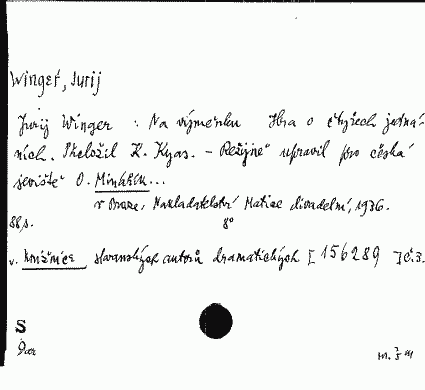 Winger, Jurij
Jurij Winger : Na výměnku Hra o čtyřech jedná-
ních. Přeložil K. Kyas. - Režijně upravil pro česká
jeviště O. Minařík...
V Praze, Nakladatelství Matice divadelní, 1936.
88 s. 8°
v. Knižnice slovanských autorů dramatických [156289 ] č. 3.
S